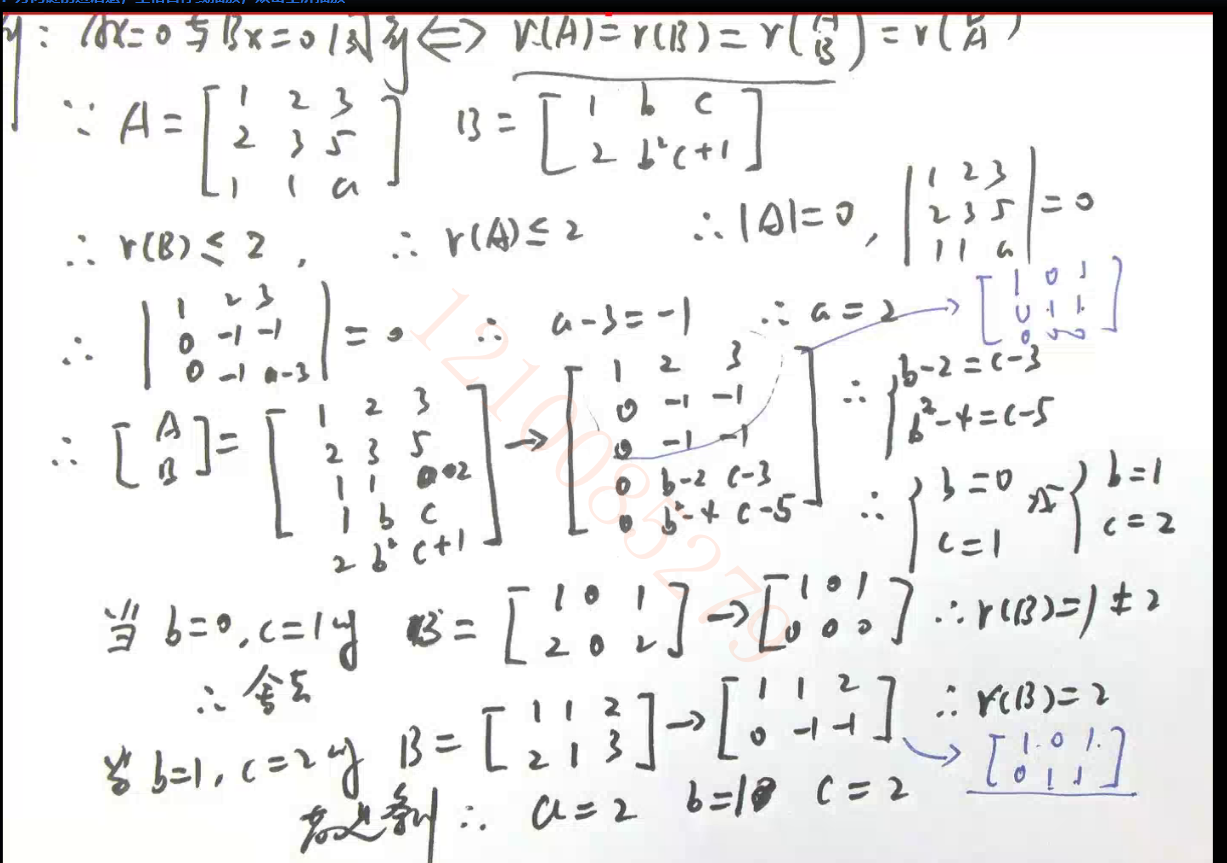 Ax=0 与 Bx=0 同 ⇔ r(A)=r(B)=r(A B)=r(B A)
∵ A=[1 2 3; 2 3 5; 1 1 a] B=[1 b c; 2 b² c+1]
∴ r(B)≤2, ∴ r(A)≤2 ∴ |A|=0, |1 2 3; 2 3 5; 1 1 a|=0
∴ |1 2 3; 0 -1 -1; 0 -1 a-3|=0 ∴ a-3=-1 ∴ a=2 → [1 0 1; 0 1 1; 0 0 0]
∴ [A; B]=[1 2 3; 2 3 5; 1 1 2; 1 b c; 2 b² c+1] → [1 2 3; 0 -1 -1; 0 -1 -1; 0 b-2 c-3; 0 b²-4 c-5] ∴ {b-2=c-3 b²-4=c-5
∴ {b=0 c=1 或 {b=1 c=2
当 b=0, c=1时 B=[1 0 1; 2 0 2] → [1 0 1; 0 0 0] ∴ r(B)=1≠2
∴ 舍去
当 b=1, c=2时 B=[1 1 2; 2 1 3] → [1 1 2; 0 -1 -1] ∴ r(B)=2 → [1 0 1; 0 1 1]
∴ a=2 b=1 c=2
1210085279